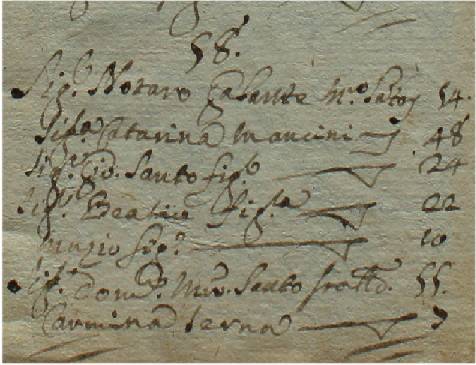 58.
Sig.r Notaro Calante M.o Santoj 54.
Sig.a Catarina Mancini 48
Sig.r Gio. Santo fig.o 24
Sig.ra Beatrice fig.a 22
Nunzio fig.o 10
Sig.r Dom.o M.o Santo fratto. 55.
Carmina serva 7